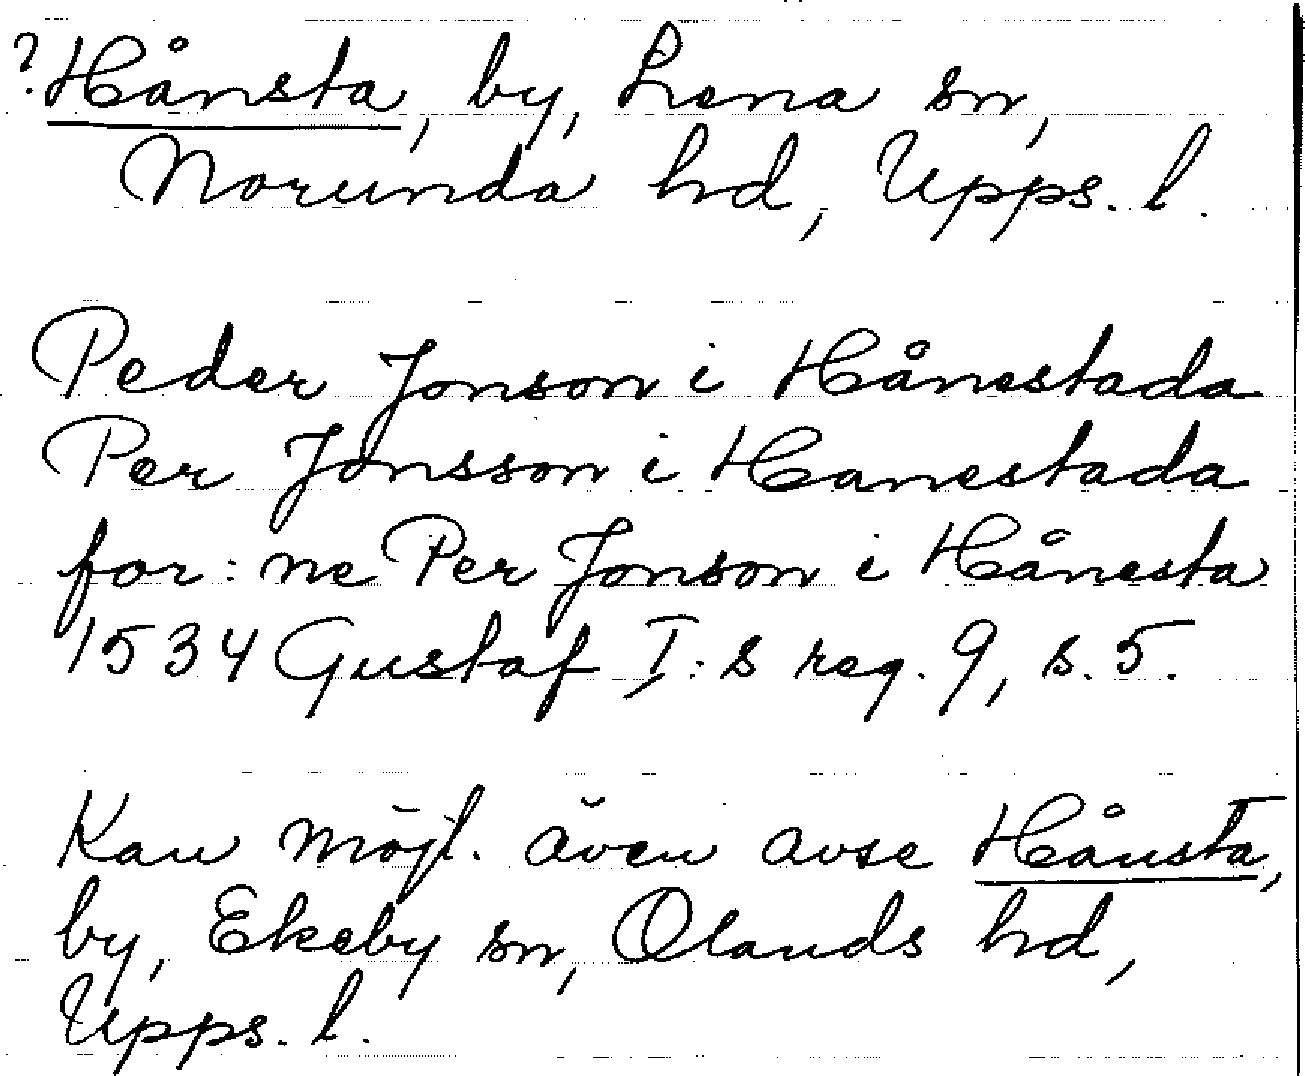 ? Hånsta, by, Lena sn,
Norunda hd, Upps. l.
Peder Jonson i Hånestada
Per Jonsson i Hanestada
for: ne Per Jonson i Hånesta
1534 Gustaf I: s reg. 9, s. 5.
Kan möjl. även avse Hånsta,
by, Ekeby sn, Olands hd,
Upps. l.